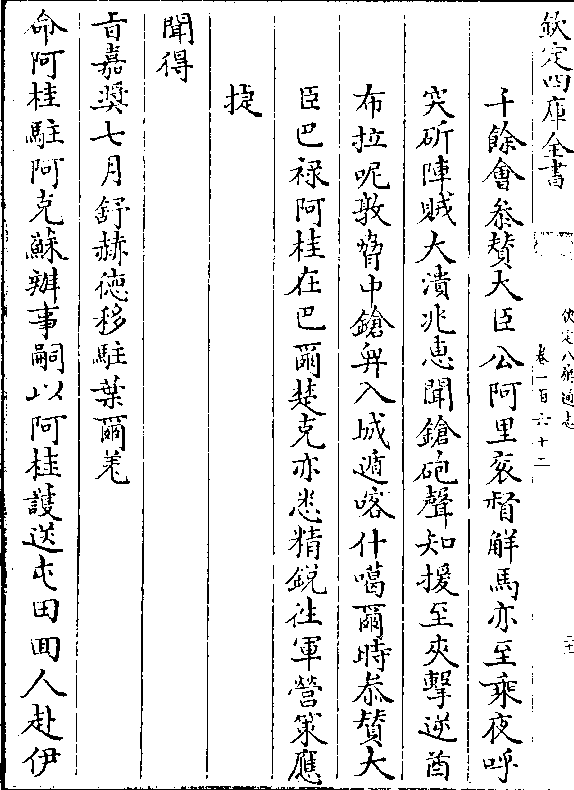 欽定四庫全書
欽定八旗通志
卷一百六十二
千餘會叅贊大臣公阿里衮督解馬亦至乘夜呼
突斫陣賊大潰兆恵聞鎗砲聲知援至夾擊逆酋
布拉呢敦脅中鎗舁入城遁喀什噶爾時叅贊大
臣巴禄阿桂在巴爾楚克亦悉精鋭往軍營策應
捷
聞得
㫖嘉奬七月舒赫徳移駐葉爾羌
命阿桂駐阿克蘇辦事嗣以阿桂護送屯田回人赴伊